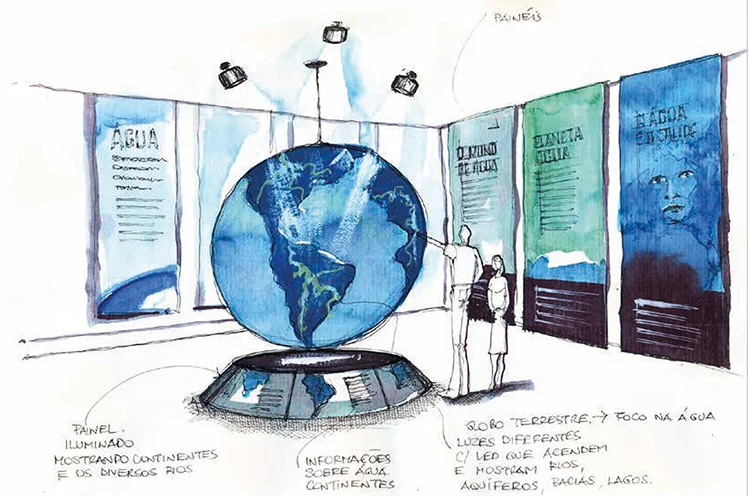 PAINÉIS
ÁGUA
O MUNDO
DE ÁGUA
PLANETA
ÁGUA
A ÁGUA
E A SAÚDE
PAINEL
ILUMINADO
MOSTRANDO CONTINENTES
E OS DIVERSOS RIOS
INFORMAÇÕES
SOBRE ÁGUA
CONTINENTES
GLOBO TERRESTRE → FOCO NA ÁGUA
LUZES DIFERENTES
C/ LED QUE ACENDEM
E MOSTRAM RIOS,
AQUÍFEROS, BACIAS, LAGOS.